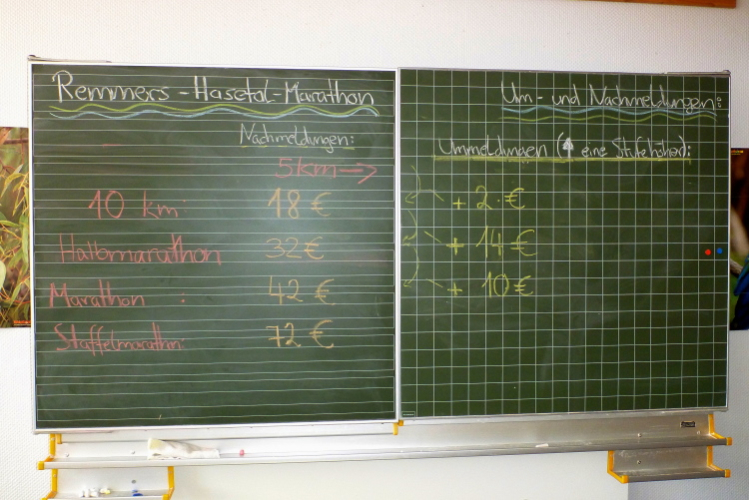 Remmers-Hasetal-Marathon
Nachmeldungen:
5km →
10 km: 18 €
Halbmarathon 32 €
Marathon 42 €
Staffelmarathon: 72 €
Um- und Nachmeldungen:
Ummeldungen (↑ eine Stufe höher):
+ 2.€
+ 14 €
+ 10 €